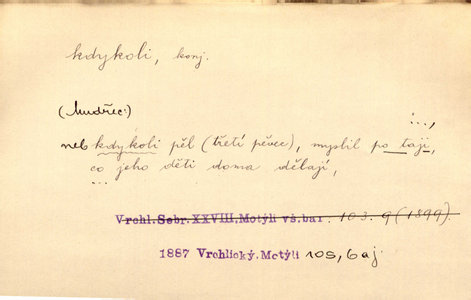 kdykoli, konj.
(Mudřec:)
...,
neb kdykoli pěl (třetí pěvec), myslil po taji,
co jeho děti doma dělají,
...
Vrchl.Sebr.XXVIII,Motýli vš.bar. 103.9 (1899).
1887 Vrchlický.Motýli 105, 6 aj.